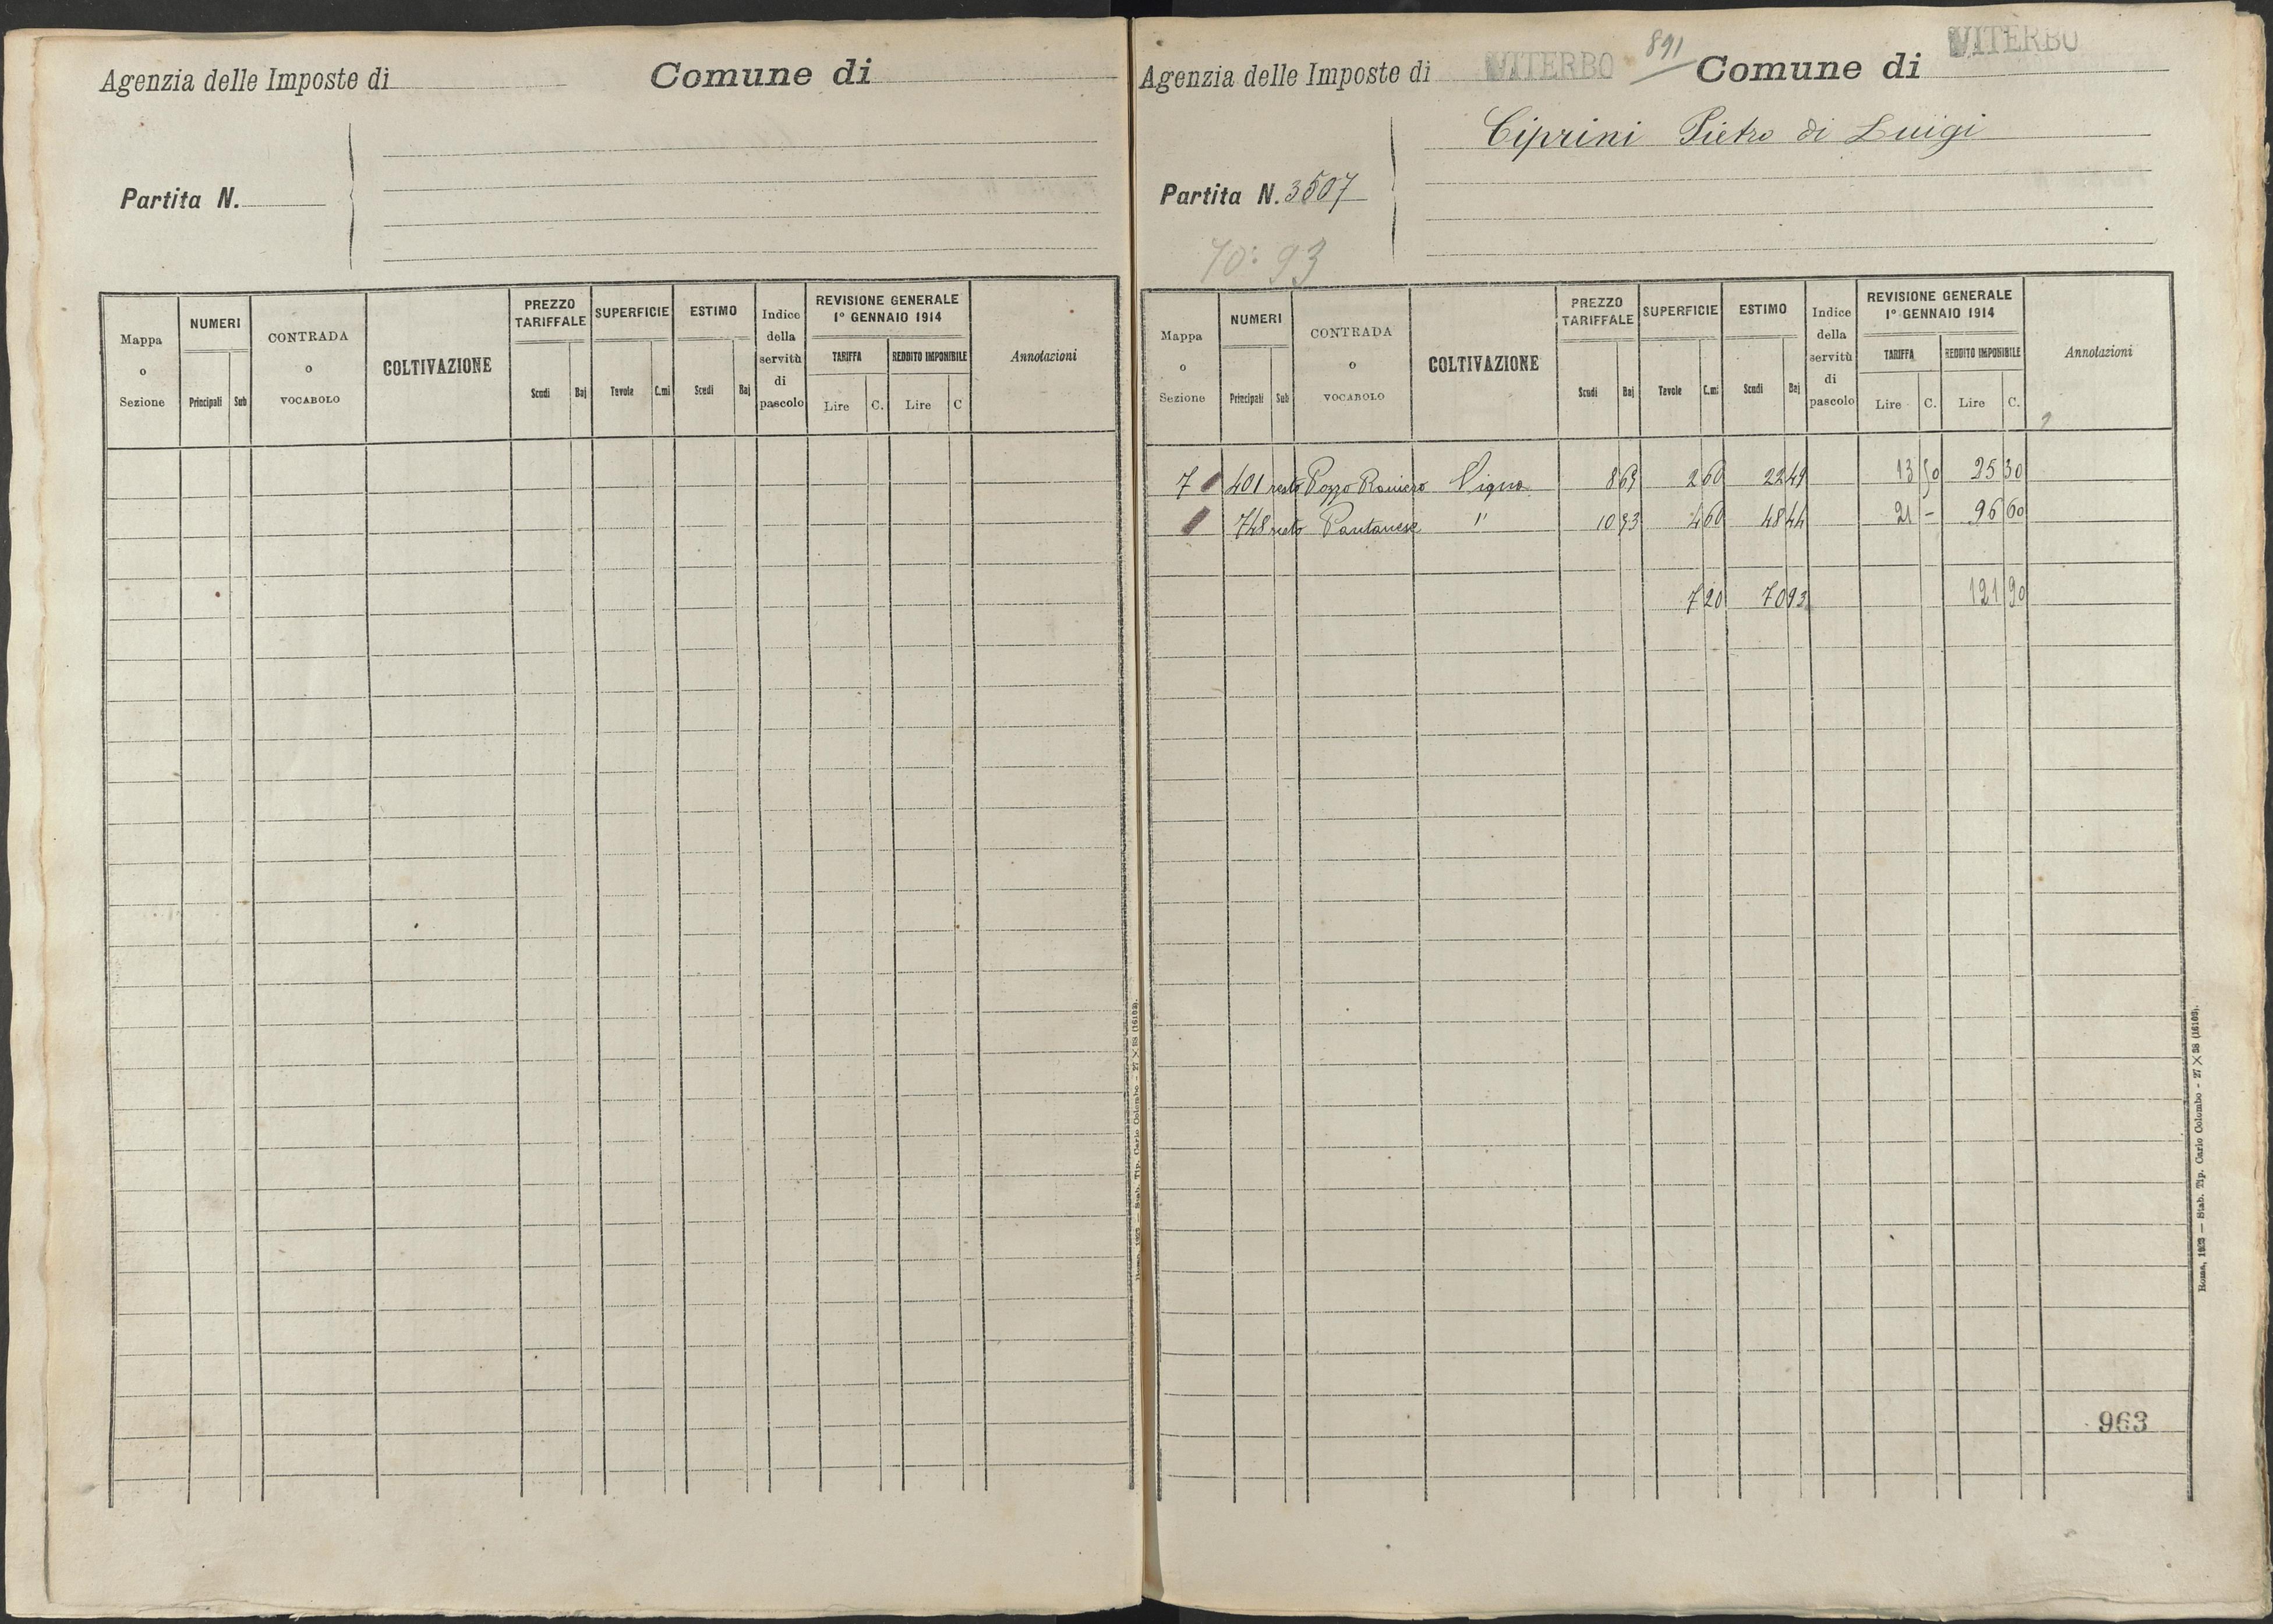 Agenzia delle Imposte di
Comune di
Partita N.
Mappa o Sezione
NUMERI
Principali
Sub
CONTRADA o VOCABOLO
COLTIVAZIONE
PREZZO TARIFFALE
Scudi
Baj
SUPERFICIE
Tavole
C.mi
ESTIMO
Scudi
Baj
Indice della servitù di pascolo
REVISIONE GENERALE 1° GENNAIO 1914
TARIFFA
Lire
C.
REDDITO IMPONIBILE
Lire
C
Annotazioni
Agenzia delle Imposte di VITERBO
891
Comune di VITERBO
Ciprini Pietro di Luigi
Partita N. 3507
70: 93
Mappa o Sezione
NUMERI
Principali
Sub
CONTRADA o VOCABOLO
COLTIVAZIONE
PREZZO TARIFFALE
Scudi
Baj
SUPERFICIE
Tavole
C.mi
ESTIMO
Scudi
Baj
Indice della servitù di pascolo
REVISIONE GENERALE 1° GENNAIO 1914
TARIFFA
Lire
C.
REDDITO IMPONIBILE
Lire
C.
Annotazioni
7 401 resto Pozzo Raniero Vigna 8 65 2 60 22 49 13 50 25 30
748 resto Pantanese " 10 53 4 60 48 44 21 - 96 60
7 20 70 93 121 90
963
Roma, 1923 — Stab. Tip. Carlo Colombo - 27 X 38 (16103).